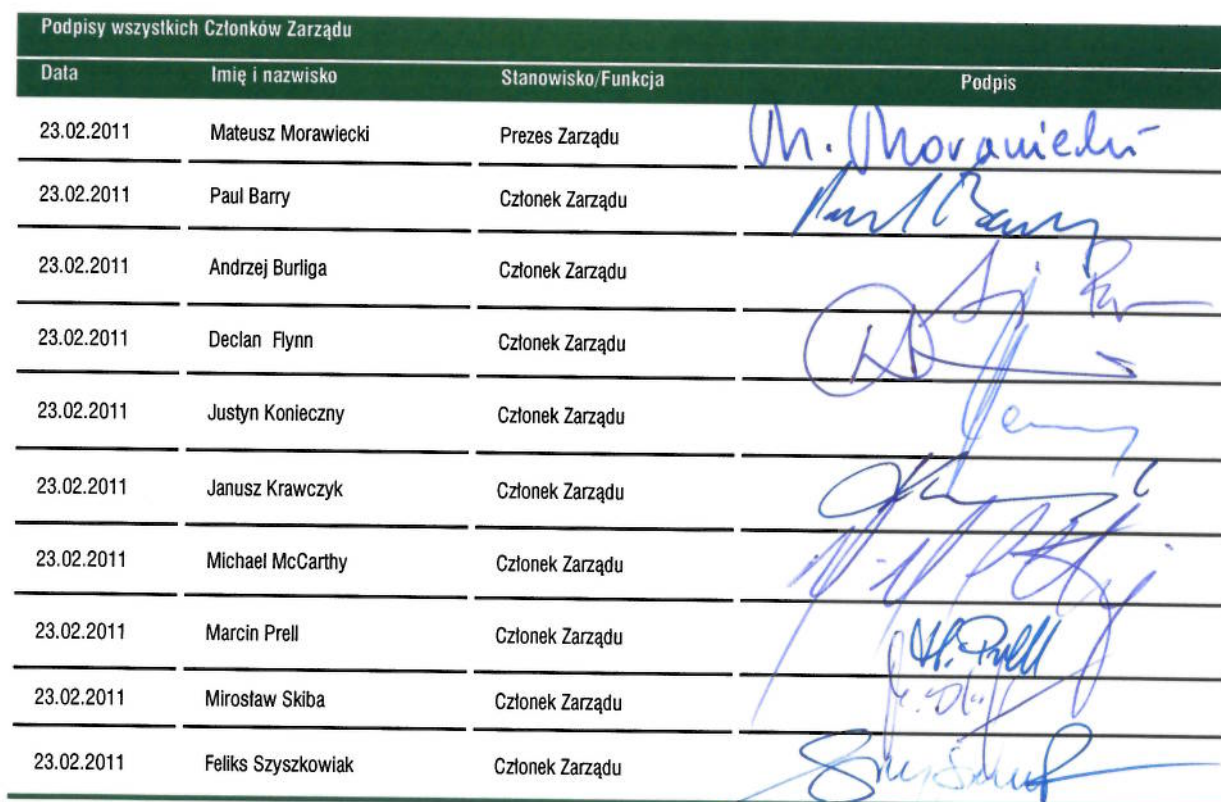 Podpisy wszystkich Członków Zarządu
Data Imię i nazwisko Stanowisko/Funkcja Podpis
23.02.2011 Mateusz Morawiecki Prezes Zarządu M. Morawiecki
23.02.2011 Paul Barry Członek Zarządu Paul Barry
23.02.2011 Andrzej Burliga Członek Zarządu
23.02.2011 Declan Flynn Członek Zarządu
23.02.2011 Justyn Konieczny Członek Zarządu
23.02.2011 Janusz Krawczyk Członek Zarządu
23.02.2011 Michael McCarthy Członek Zarządu
23.02.2011 Marcin Prell Członek Zarządu M. Prell
23.02.2011 Mirosław Skiba Członek Zarządu
23.02.2011 Feliks Szyszkowiak Członek Zarządu